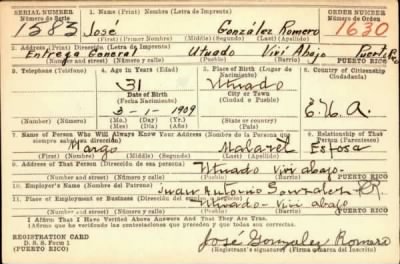 SERIAL NUMBER 1. Name (Print) Nombre (Letra de Imprenta) ORDER NUMBER
Número de Serie Número de Orden
1383 José González Romero 1630
First (Primer Nombre) (Middle) (Segundo) Last (Apellido)
2. Address (Print) Dirección (Letra de Imprenta)
Entrega General Utuado Viví Abajo Puerto Rico
Number and street (Número y calle) (Pueblo) (Barrio) PUERTO RICO
3. Telephone (Teléfono) 4. Age in Years (Edad) 5. Place of Birth (Lugar de Nacimiento) 6. Country of Citizenship (Ciudadanía)
31 Utuado
Date of Birth City or Town
(Fecha Nacimiento) (Ciudad o Pueblo)
3-1-1909 E.U.A.
(Mo.) (Day) (Yr.) State or country
(Mes) (Día) (Año) (Estado o país)
7. Name of Person Who Will Always Know Your Address (Nombre de la Persona que siempre sabrá su dirección) 8. Relationship of That Person (Parentesco)
Margo Malaret Esposa
First (Nombre) (Middle) (Segundo) Last (Apellido)
9. Address of That Person (Dirección de esa persona)
Utuado Viví abajo-
Number and street (Número y calle) (Pueblo) (Barrio) PUERTO RICO
10. Employer's Name (Nombre del Patrono)
Juan Antonio González
11. Place of Employment or Business (Dirección del empleo o negocio)
Utuado- Viví abajo
Number and street (Número y calle) (Pueblo) (Barrio) PUERTO RICO
I Affirm That I Have Verified Above Answers And That They Are True.
(Afirmo que he verificado las contestaciones que preceden y que todas son correctas.)
REGISTRATION CARD
D. S. S. Form 1
(PUERTO RICO)
José González Romero
(Registrant's signature) (Firma del inscrito)